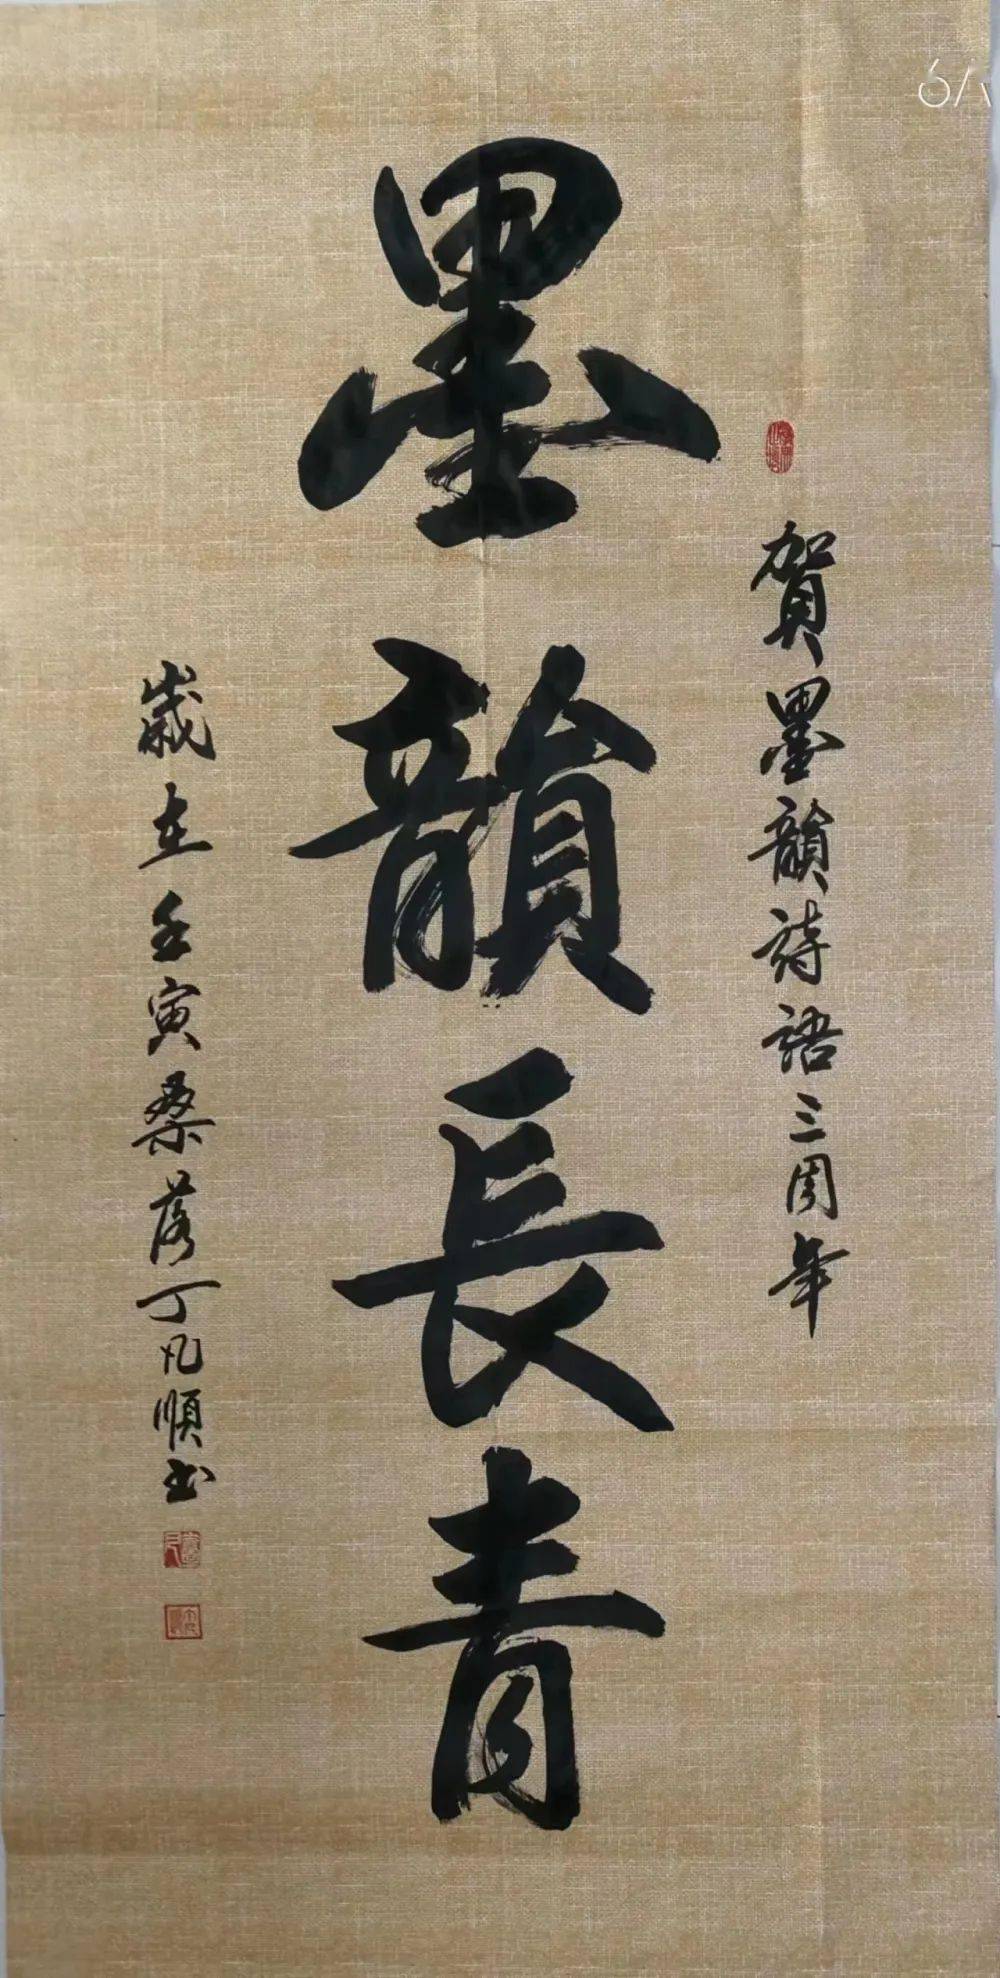 賀墨韻詩語三周年
墨韻長青
歲在壬寅桑落丁凡順书